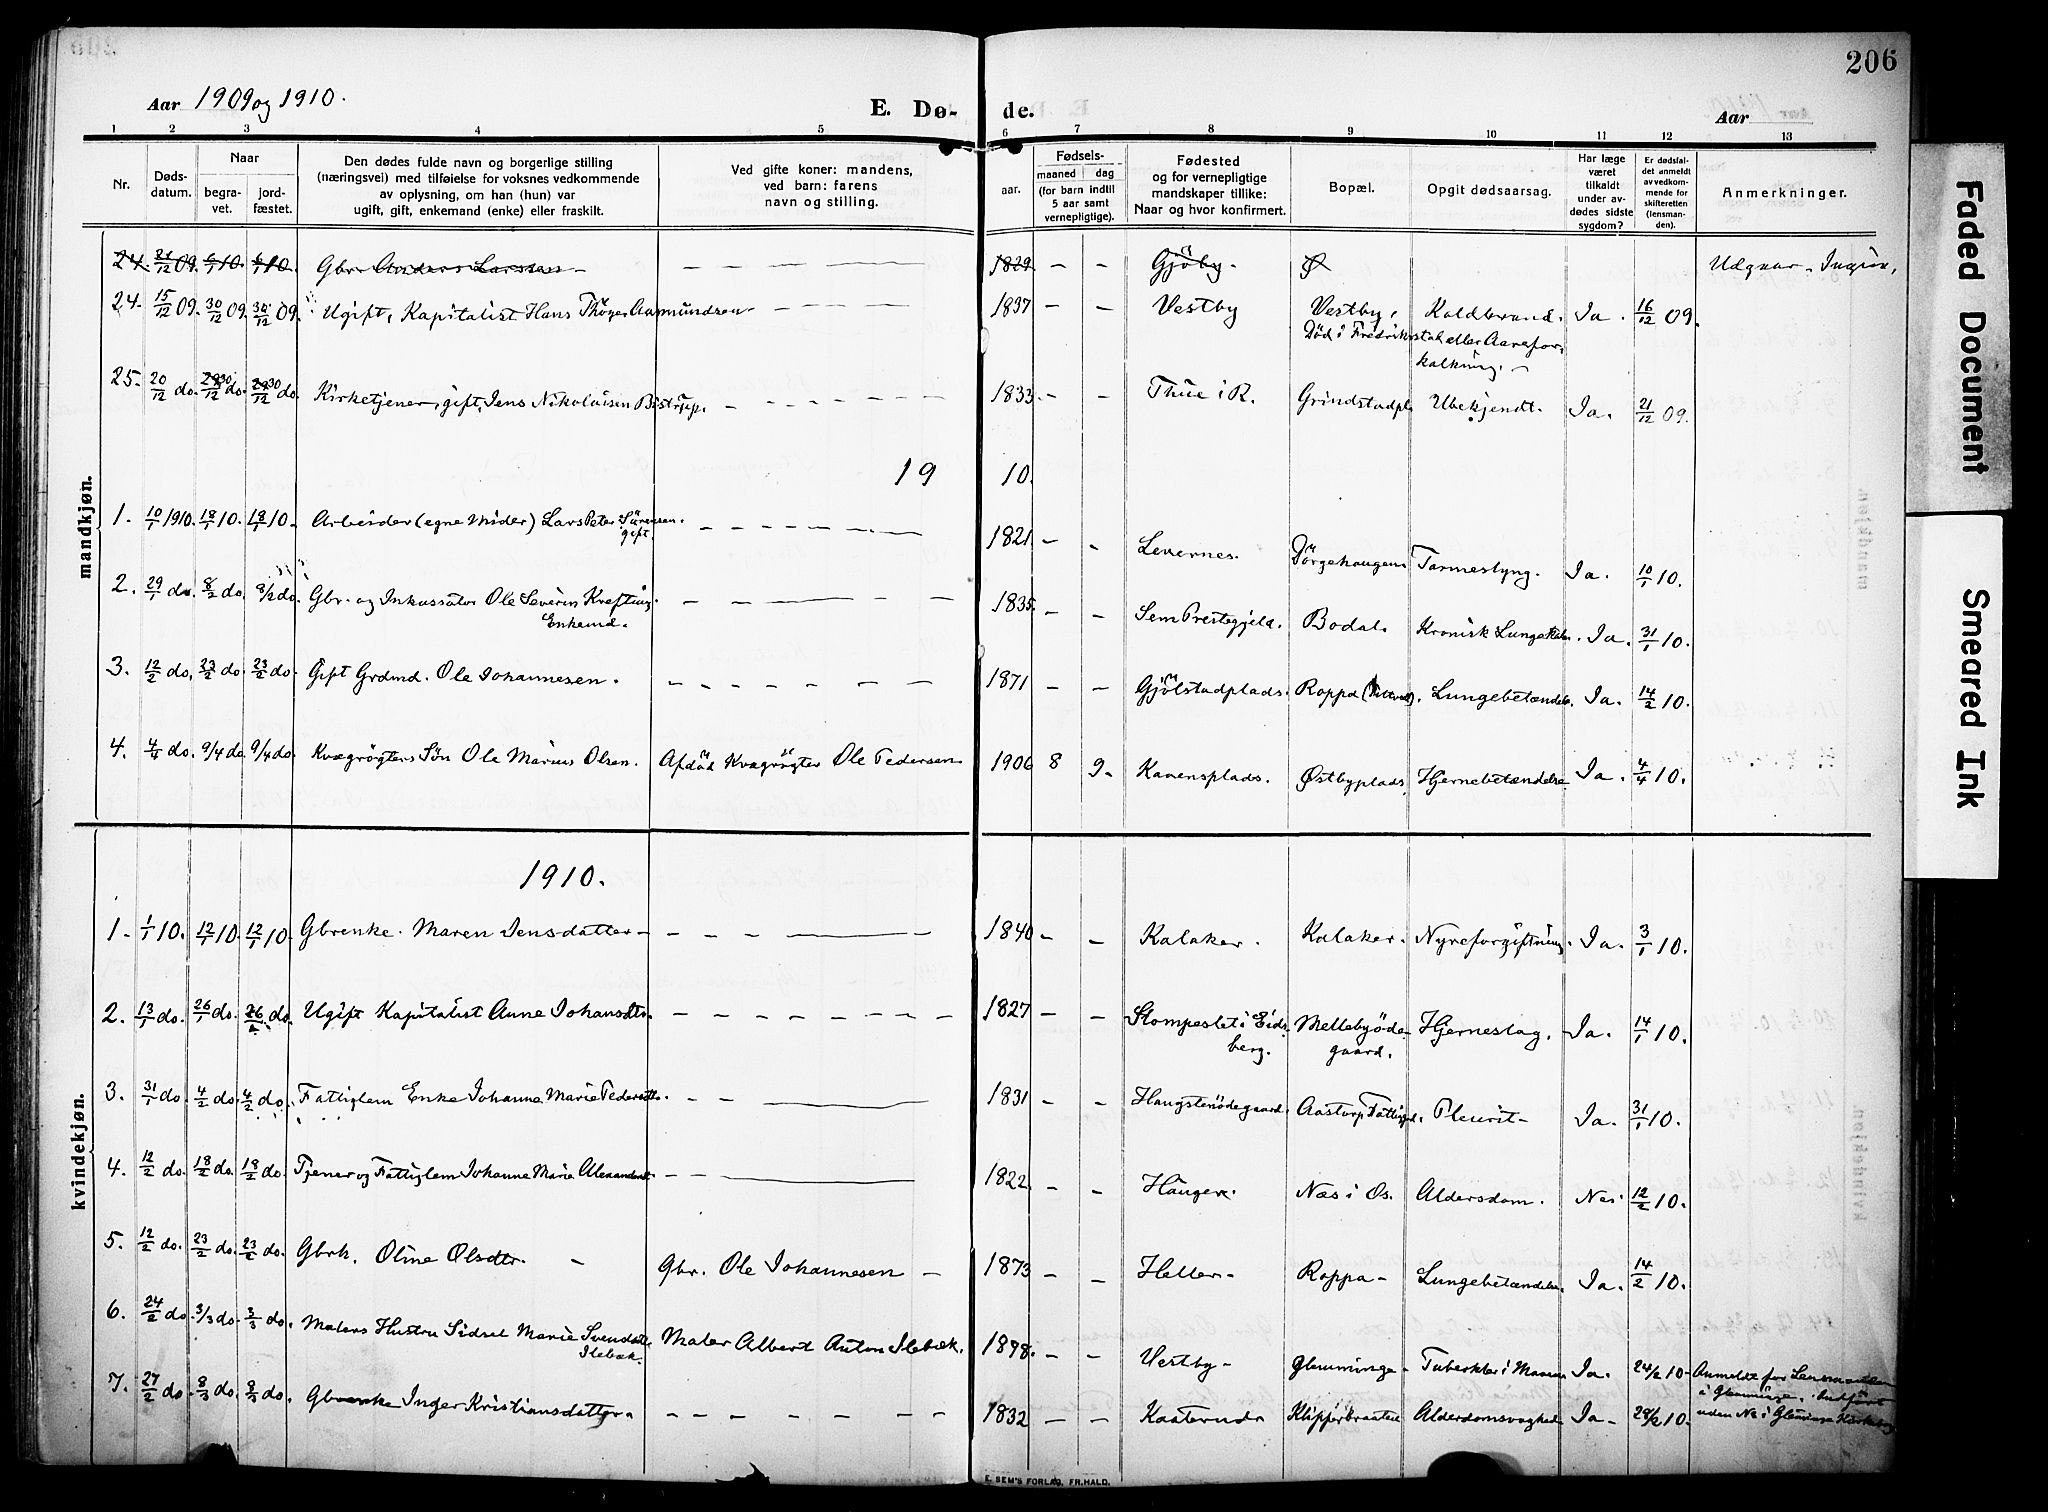 206
Aar 1909 og 1910.
E. Dø- de.
Aar
1 2 3 4 5 6 7 8 9 10 11 12 13
Nr.
Døds-
datum.
Naar
begra-
vet.
jord-
fæstet.
Den dødes fulde navn og borgerlige stilling
(næringsvei) med tilføielse for voksnes vedkommende
av oplysning, om han (hun) var
ugift, gift, enkemand (enke) eller fraskilt.
Ved gifte koner: mandens,
ved barn: farens
navn og stilling.
aar.
Fødsels-
maaned dag
(for barn indtil
5 aar samt
vernepligtige).
Fødested
og for vernepligtige
mandskaper tillike:
Naar og hvor konfirmert.
Bopæl.
Opgit dødsaarsag.
Har læge
været
tilkaldt
under av-
dødes sidste
sygdom?
Er dødsfal-
det anmeldt
av vedkom-
mende for
skifteretten
(lensman-
den).
Anmerkninger.
mandkjøn.
24. 31/12 09. 6/1 10. 6/1 10. Gbr. Anders Larssen - 1829 - - Gjöby. Udgaar
24. 15/12 09. 30/12 09. 30/12 09. Ugift, Kapitalist Hans Thöger Aamundsen - 1837 - - Vestby Vestby, Koldbrand. Ja. 16/12 09.
Död i Fredrikstad eller Aarefor-
kalkning. -
25. 20/12 do. 29/12 30 do. 29/12 30 do. Kirketjener, gift, Jens Nikolaisen Bistrup. - 1833 - - Thue i R. Grindstadpl. Ubekjendt. Ja. 21/12 09.
19 10.
1. 10/1 1910. 18/1 10. 18/1 10. Arbeider (egne Midler) Lars Peter Sürensen. - 1821. - - Levernes. Dörgehaugen Tarmeslyng. Ja. 10/1 10.
gift.
2. 29/1 do. 8/2 do. 8/2 do. Gbr. og Inkassator Ole Severin Krefting. - 1835. - - Sem Prestegjeld. Bodal. Kronisk Ja. 31/1 10.
Enkemd.
3. 12/2 do. 23/2 do. 23/2 do. Gift Grdmd. Ole Johannesen. - 1871 - - Gjölstadplads. Roppa Lungebetændelse. Ja. 14/2 10.
4. 4/4 do. 9/4 do. 9/4 do. Kvægrögters Sön Ole Marius Olsen. Afdöd Kvægrögter Ole Pedersen 1906 8 9. Kavensplads. Østbyplads. Hjernebetændelse Ja. 4/4 10.
kvindekjøn.
1910.
1. 1/1 10. 12/1 10. 12/1 10. Gbrenke. Maren Jensdatter - 1840 - - Kalaker. Kalaker. Nyreforgiftning. Ja. 3/1 10.
2. 13/1 do. 26/1 do. 26/1 do. Ugift Kapitalist Anne Johansdtr. - 1827 - - Stompeslet i Eids- Mellebyöde- Hjerneslag. Ja. 14/1 10.
berg. gaard.
3. 31/1 do. 4/2 do. 4/2 do. Fattiglem Enke Johanne Marie Pedersdtr. - 1831 - - Haugstenödegaard. Aastorp Fattiggd. Pleurit - Ja. 31/1 10.
4. 12/2 do. 18/2 do. 18/2 do. Tjener og Fattiglem Johanne Marie Alexandersd. - 1822. - - Hauger. Næs i Øs. Aldersdom. Nei 12/2 10.
5. 12/2 do. 23/2 do. 23/2 do. Gbrk. Oline Olsdtr. - Gbr. Ole Johannesen - 1873 - - Heller - Roppa - Lungebetændelse. Ja. 14/2 10.
6. 24/2 do. 3/3 do. 3/3 do. Malers Hustru Sidsel Marie Svendsdtr. Maler Albert Anton Slebæk. 1898. - - Vestby - Glemminge - Tuberkler i Maven Ja. 24/2 10. Anmeldt for Lensmanden
Slebæk. i Glemminge. Indfört
7. 27/2 do. 8/3 do. 8/3 do. Gbrenke Inger Kristiansdatter. - 1832 - - Kasterud. Klipperbraaten Alderdomsvaghed Ja - 28/2 10. uden No i Glemminge Kirkebog
E. SEM'S FORLAG, FR.HALD.
Faded Document
Smeared Ink